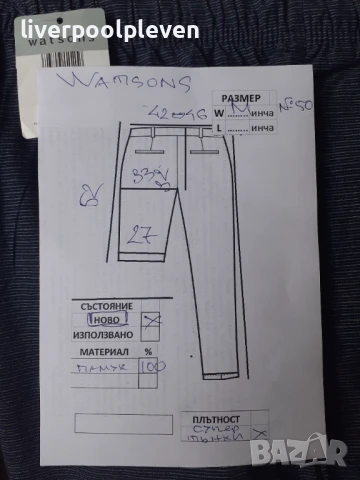 liverpoolpleven
watsons
WATSONS
РАЗМЕР
42↔46
W ...M... инча
№50
L ........ инча
33
27
СЪСТОЯНИЕ
НОВО X
ИЗПОЛЗВАНО
МАТЕРИАЛ %
ПАМУК 100
ПЛЪТНОСТ
СУПЕР
ТЪНКИ X
BAZAR